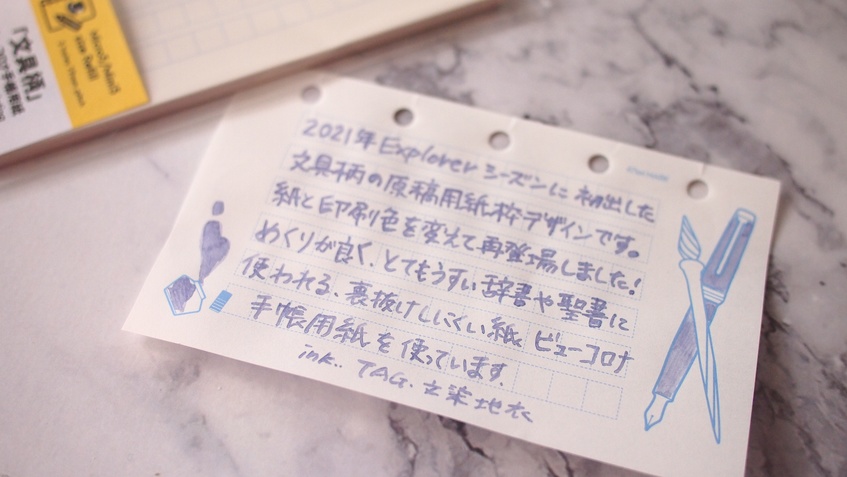 「文具柄」
2021年 Explorer シーズンに 初出した
文具柄の原稿用紙枠デザインです。
紙と印刷色を変えて再登場しました!
めくりが良く、とてもうすい辞書や聖書に
使われる、裏抜けしにくい紙 ビューコロナ
手帳用紙を使っています。
ink.. TAG. 文染地衣